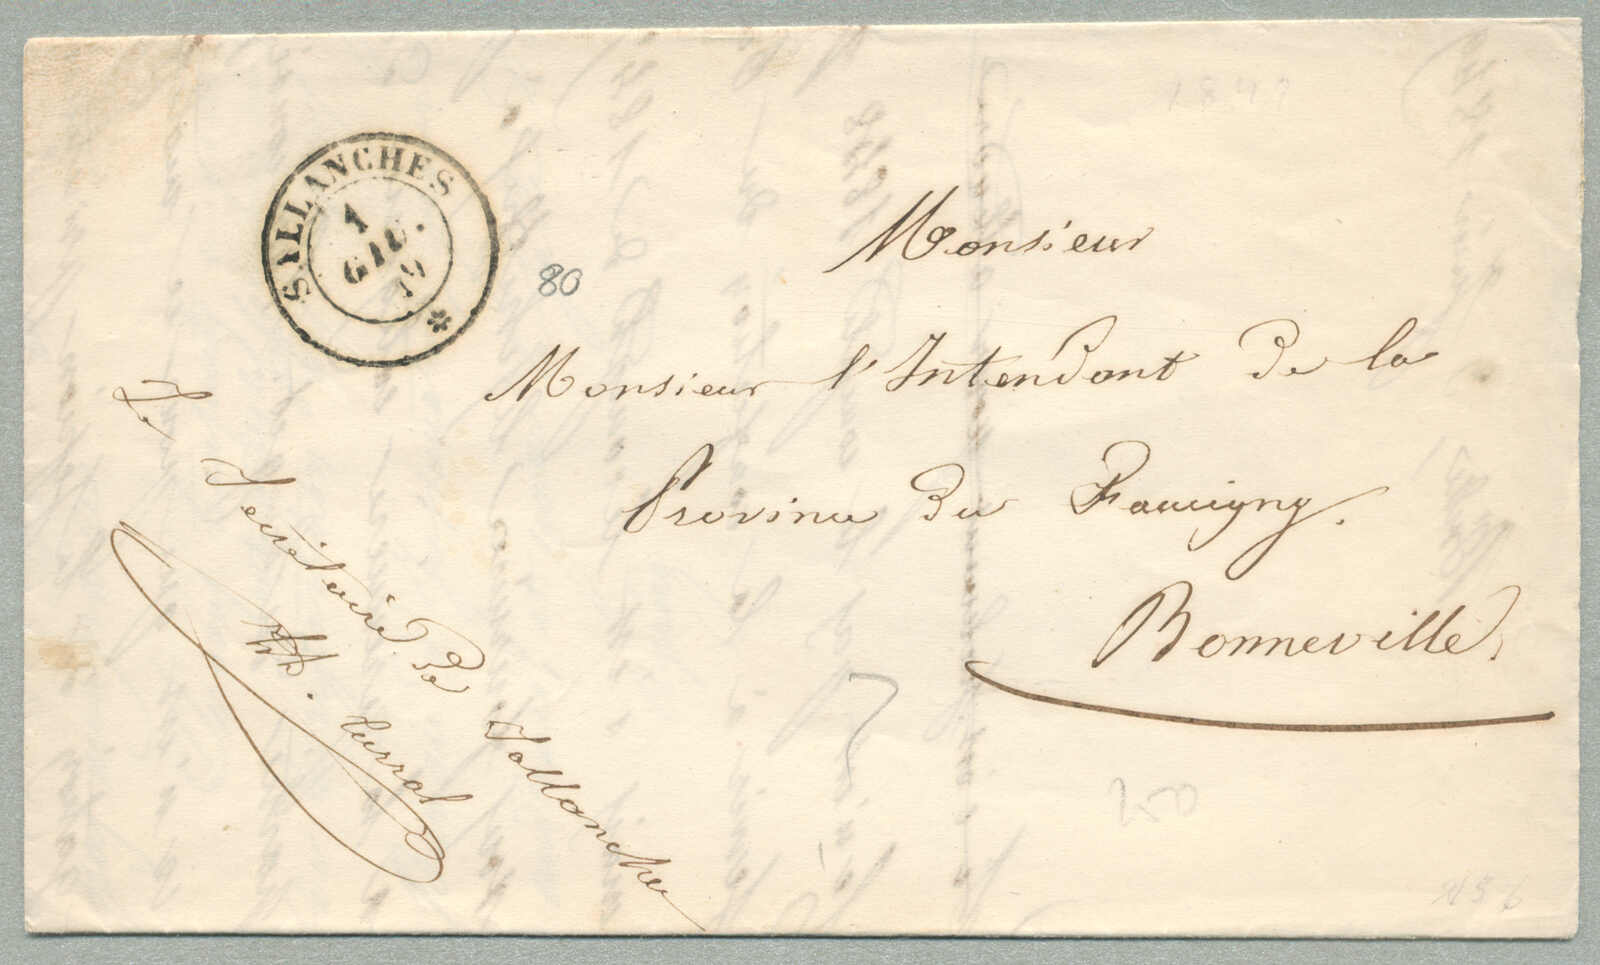 SALLANCHES
1
GIU.
49
80
Monsieur
Monsieur l'Intendant De la
Province Du Faucigny.
Bonneville
Le Secrétaire De Sallanches
250